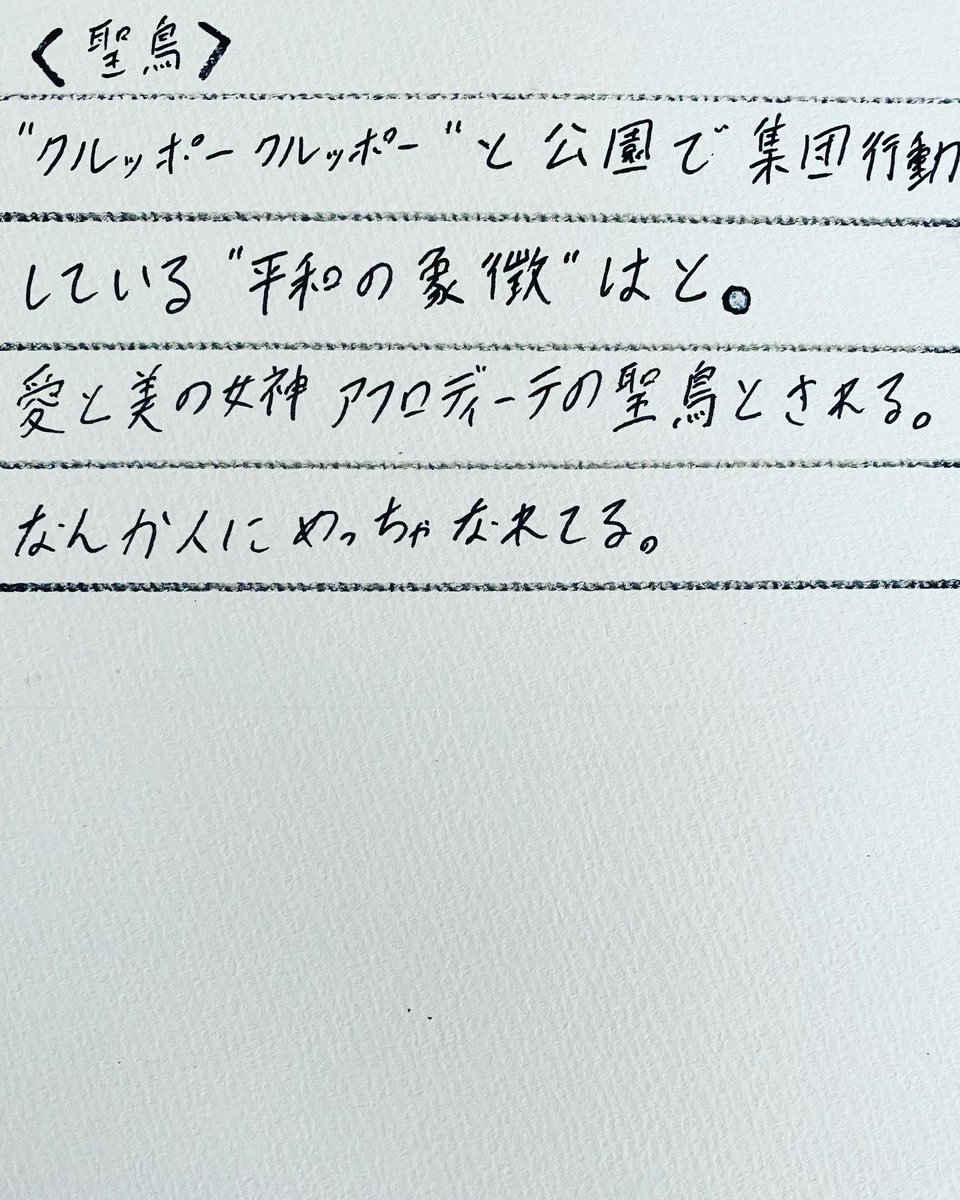 〈聖鳥〉
"クルッポークルッポー"と公園で集団行動
している"平和の象徴"はと。
愛と美の女神アフロディーテの聖鳥とされる。
なんか人にめっちゃなれてる。